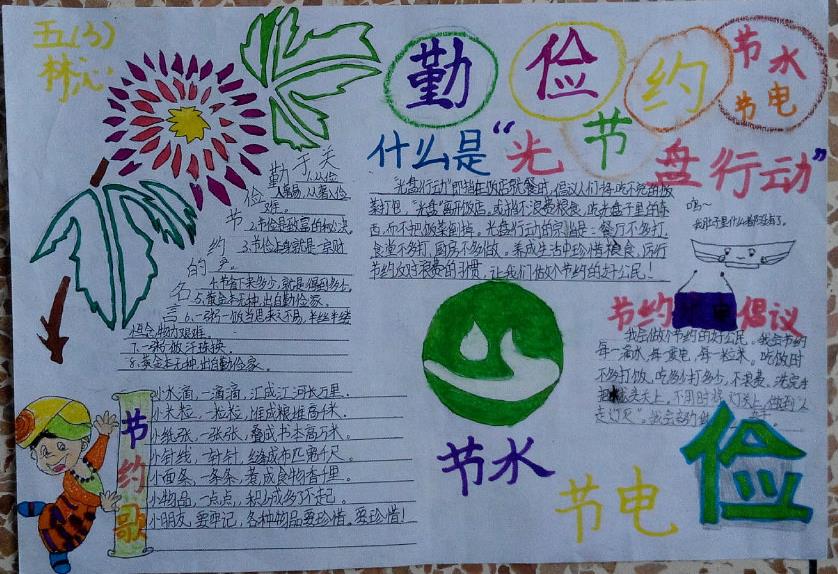 五(3)
林沁
勤 俭 节 约
节水
节电
什么是“光盘行动”
“光盘行动”即指在饭店就餐时，倡议人们将吃不完的饭
菜打包，“光盘”离开饭店，或指不浪费粮食，吃光盘子里的东
西，而不把饭菜倒掉。光盘行动的宗旨是：餐厅不多打，
食堂不多打，厨房不多做，养成生活中珍惜粮食，厉行
节约反对浪费的习惯，让我们做个节约的好公民！
关于勤俭节约的名言
1.从俭
入奢易，从奢入俭
难。
2.节俭是致富的秘诀。
3.节俭本身就是一宗财
产。
5.黄金本无种，出自勤俭家。
6.一粥一饭当思来之不易，半丝半缕
恒念物力艰难。
7.一粥一饭，汗珠换。
8.黄金本无种，出自勤俭家。
节约歌
小水滴，一滴滴，汇成江河长万里。
小米粒，一粒粒，堆成粮堆高千米。
小纸张，一张张，叠成书本高万米。
小针线，一针针，
小面条，一条条，煮成食物香千里。
小物品，一点点，积少成多了不起。
小朋友，要牢记，各种物品要珍惜。要珍惜！
节水
节电
我肚子里什么都没有了。
节约 倡议
我会做个节约的好公民。我会节约
每一滴水，每一度电，每一粒米。吃饭时
不多打饭，吃多少打多少，不浪费。洗完手
关上，不用时将灯关上，做到“人
走灯灭”。
俭